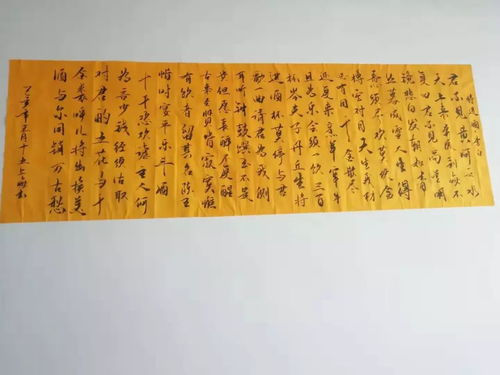 将进酒 李白
君不见黄河之水
天上来奔流到海不
复回君不见高堂明
镜悲白发朝如青
丝暮成雪人生得
意须尽欢莫使金
樽空对月天生我材
必有用千金散尽
还复来烹羊宰牛
且为乐会须一饮三百
杯岑夫子丹丘生将
进酒杯莫停与君
歌一曲请君为我侧
耳听钟鼓馔玉不足
贵但愿长醉不愿醒
古来圣贤皆寂寞惟
有饮者留其名陈王
昔时宴平乐斗酒
十千恣欢谑主人何
为言少钱径须沽取
对君酌五花马千
金裘呼儿将出换美
酒与尔同销万古愁
年五月十五